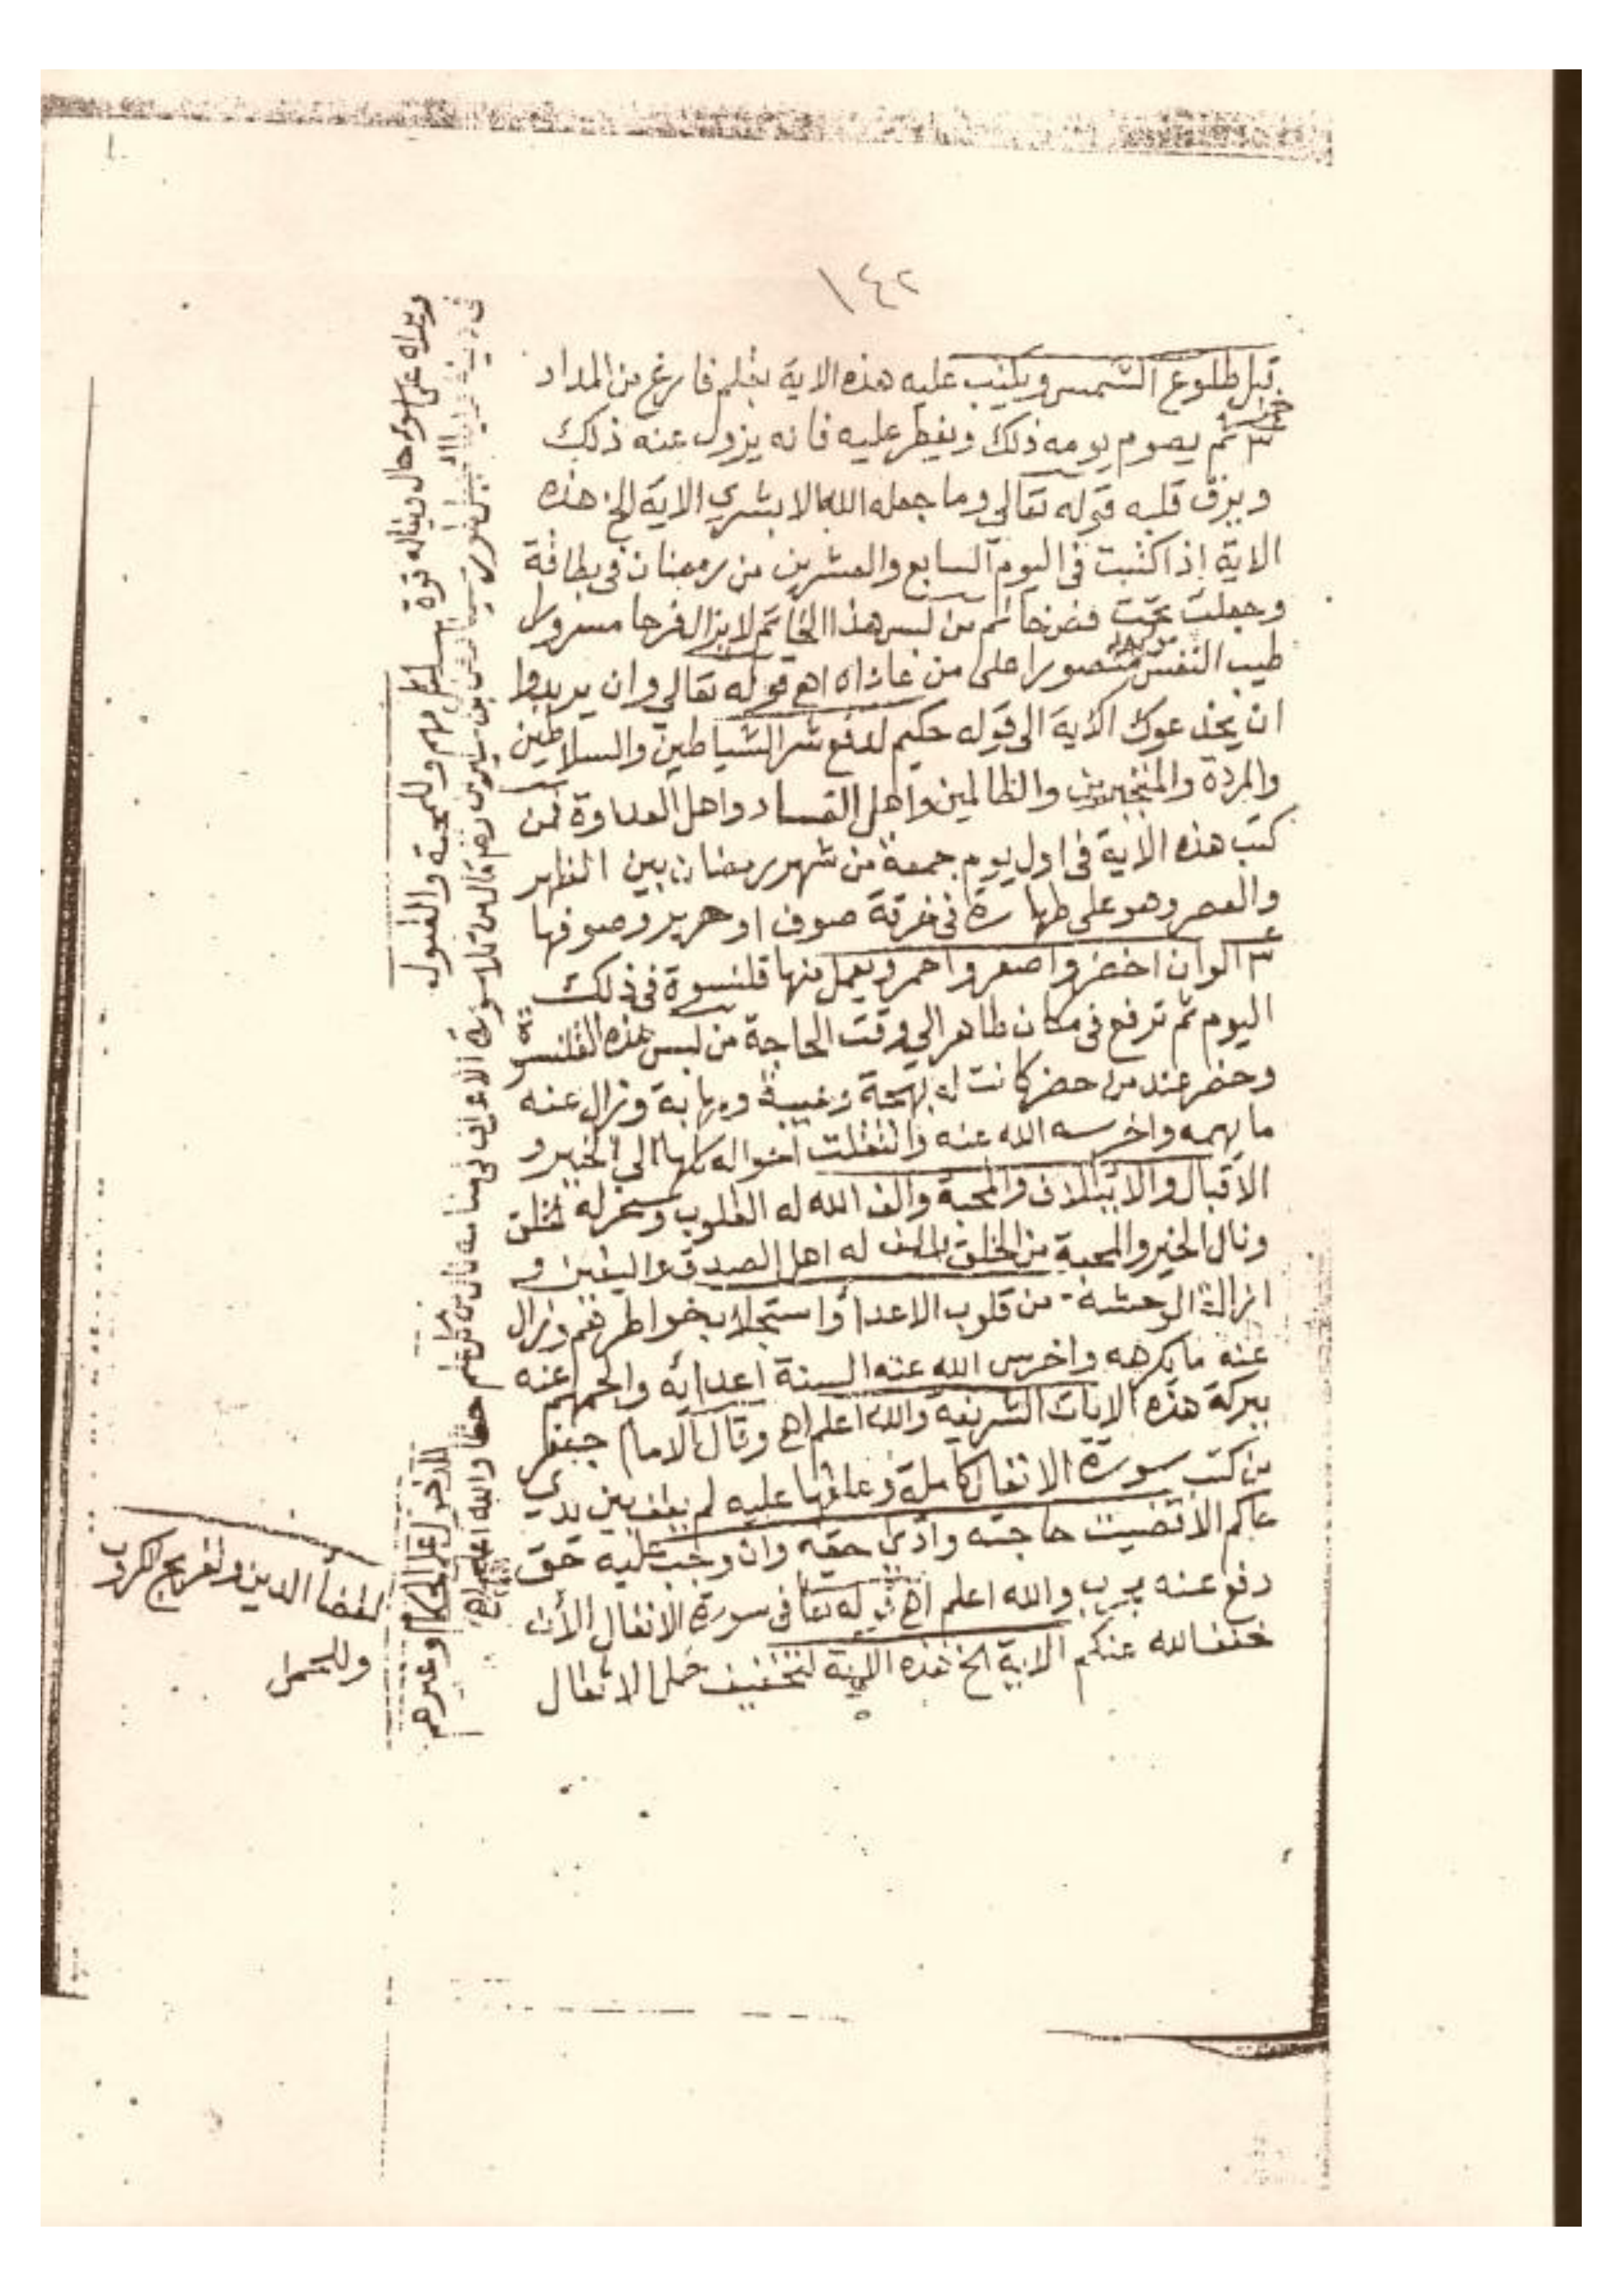 ١٤٢
قبل طلوع الشمس ويكتب عليه هذه الاية بقلم فارغ من المداد
ثم يصوم يومه ذلك ويفطر عليه فانه يزول عنه ذلك
ويرق قلبه قوله تعالي وما جعله الله الا بشري الاية الخ هذه
الاية اذا كتبت في اليوم السابع والعشرين من رمضان في بطاقة
وجعلت تحت فص خاتم من لبس هذا الخاتم لا يزال فرحا مسرورا
طيب النفس منصورا على من عاداه اهـ قوله تعالي وان يريدوا
ان يخدعوك الاية الى قوله حكيم لدفع شر الشياطين والسلاطين
والمردة والمتجبرين والظالمين واهل الفساد واهل العداوة فمن
كتب هذه الاية في اول يوم جمعة من شهر رمضان بين الظهر
والعصر وهو على طهارة في خرقة صوف او حرير وصوفها
٣ الوان اخضر واصفر واحمر ويعمل منها قلنسوة في ذلك
اليوم ثم ترفع في مكان طاهر الي وقت الحاجة من لبس هذه القلنسوة
وحضر عند من حضر كانت له بهجة وهيبة ومهابة وزال عنه
ما يهمه واخرسه الله عنه وانتقلت احواله كلها الي الخير و
الاقبال والائتلاف والمحبة والف الله له القلوب وسخر له خلق
ونال الخير والمحبة من الخلق له اهل الصدق واليقين و
ازالة الوحشة من قلوب الاعدا واستجلاب خواطرهم وزال
عنه ما يكرهه واخرس الله عنه السنة اعدائه والجمهم عنه
ببركة هذه الايات الشريفة والله اعلم اهـ وقال الامام جعفر
من كتب سورة الانفال كاملة وعلقها عليه لم يقف بين يدي
حاكم الا قضيت حاجته وادي حقه وان وجب عليه حق
دفع عنه مجرب والله اعلم اهـ قوله تعا في سورة الانفال الأن
خفف الله عنكم الاية الخ هذه الاية لتخفيف حمل الاثقال
سورة الاعراف في منامه
حقا والله اعلم اهـ
على اسوء حال ويناله قوة مهم وللمحبة والقبول
للدخول على الحكام وغيرهم
لقضأ الدين وتفريج الكروب
وللحمل